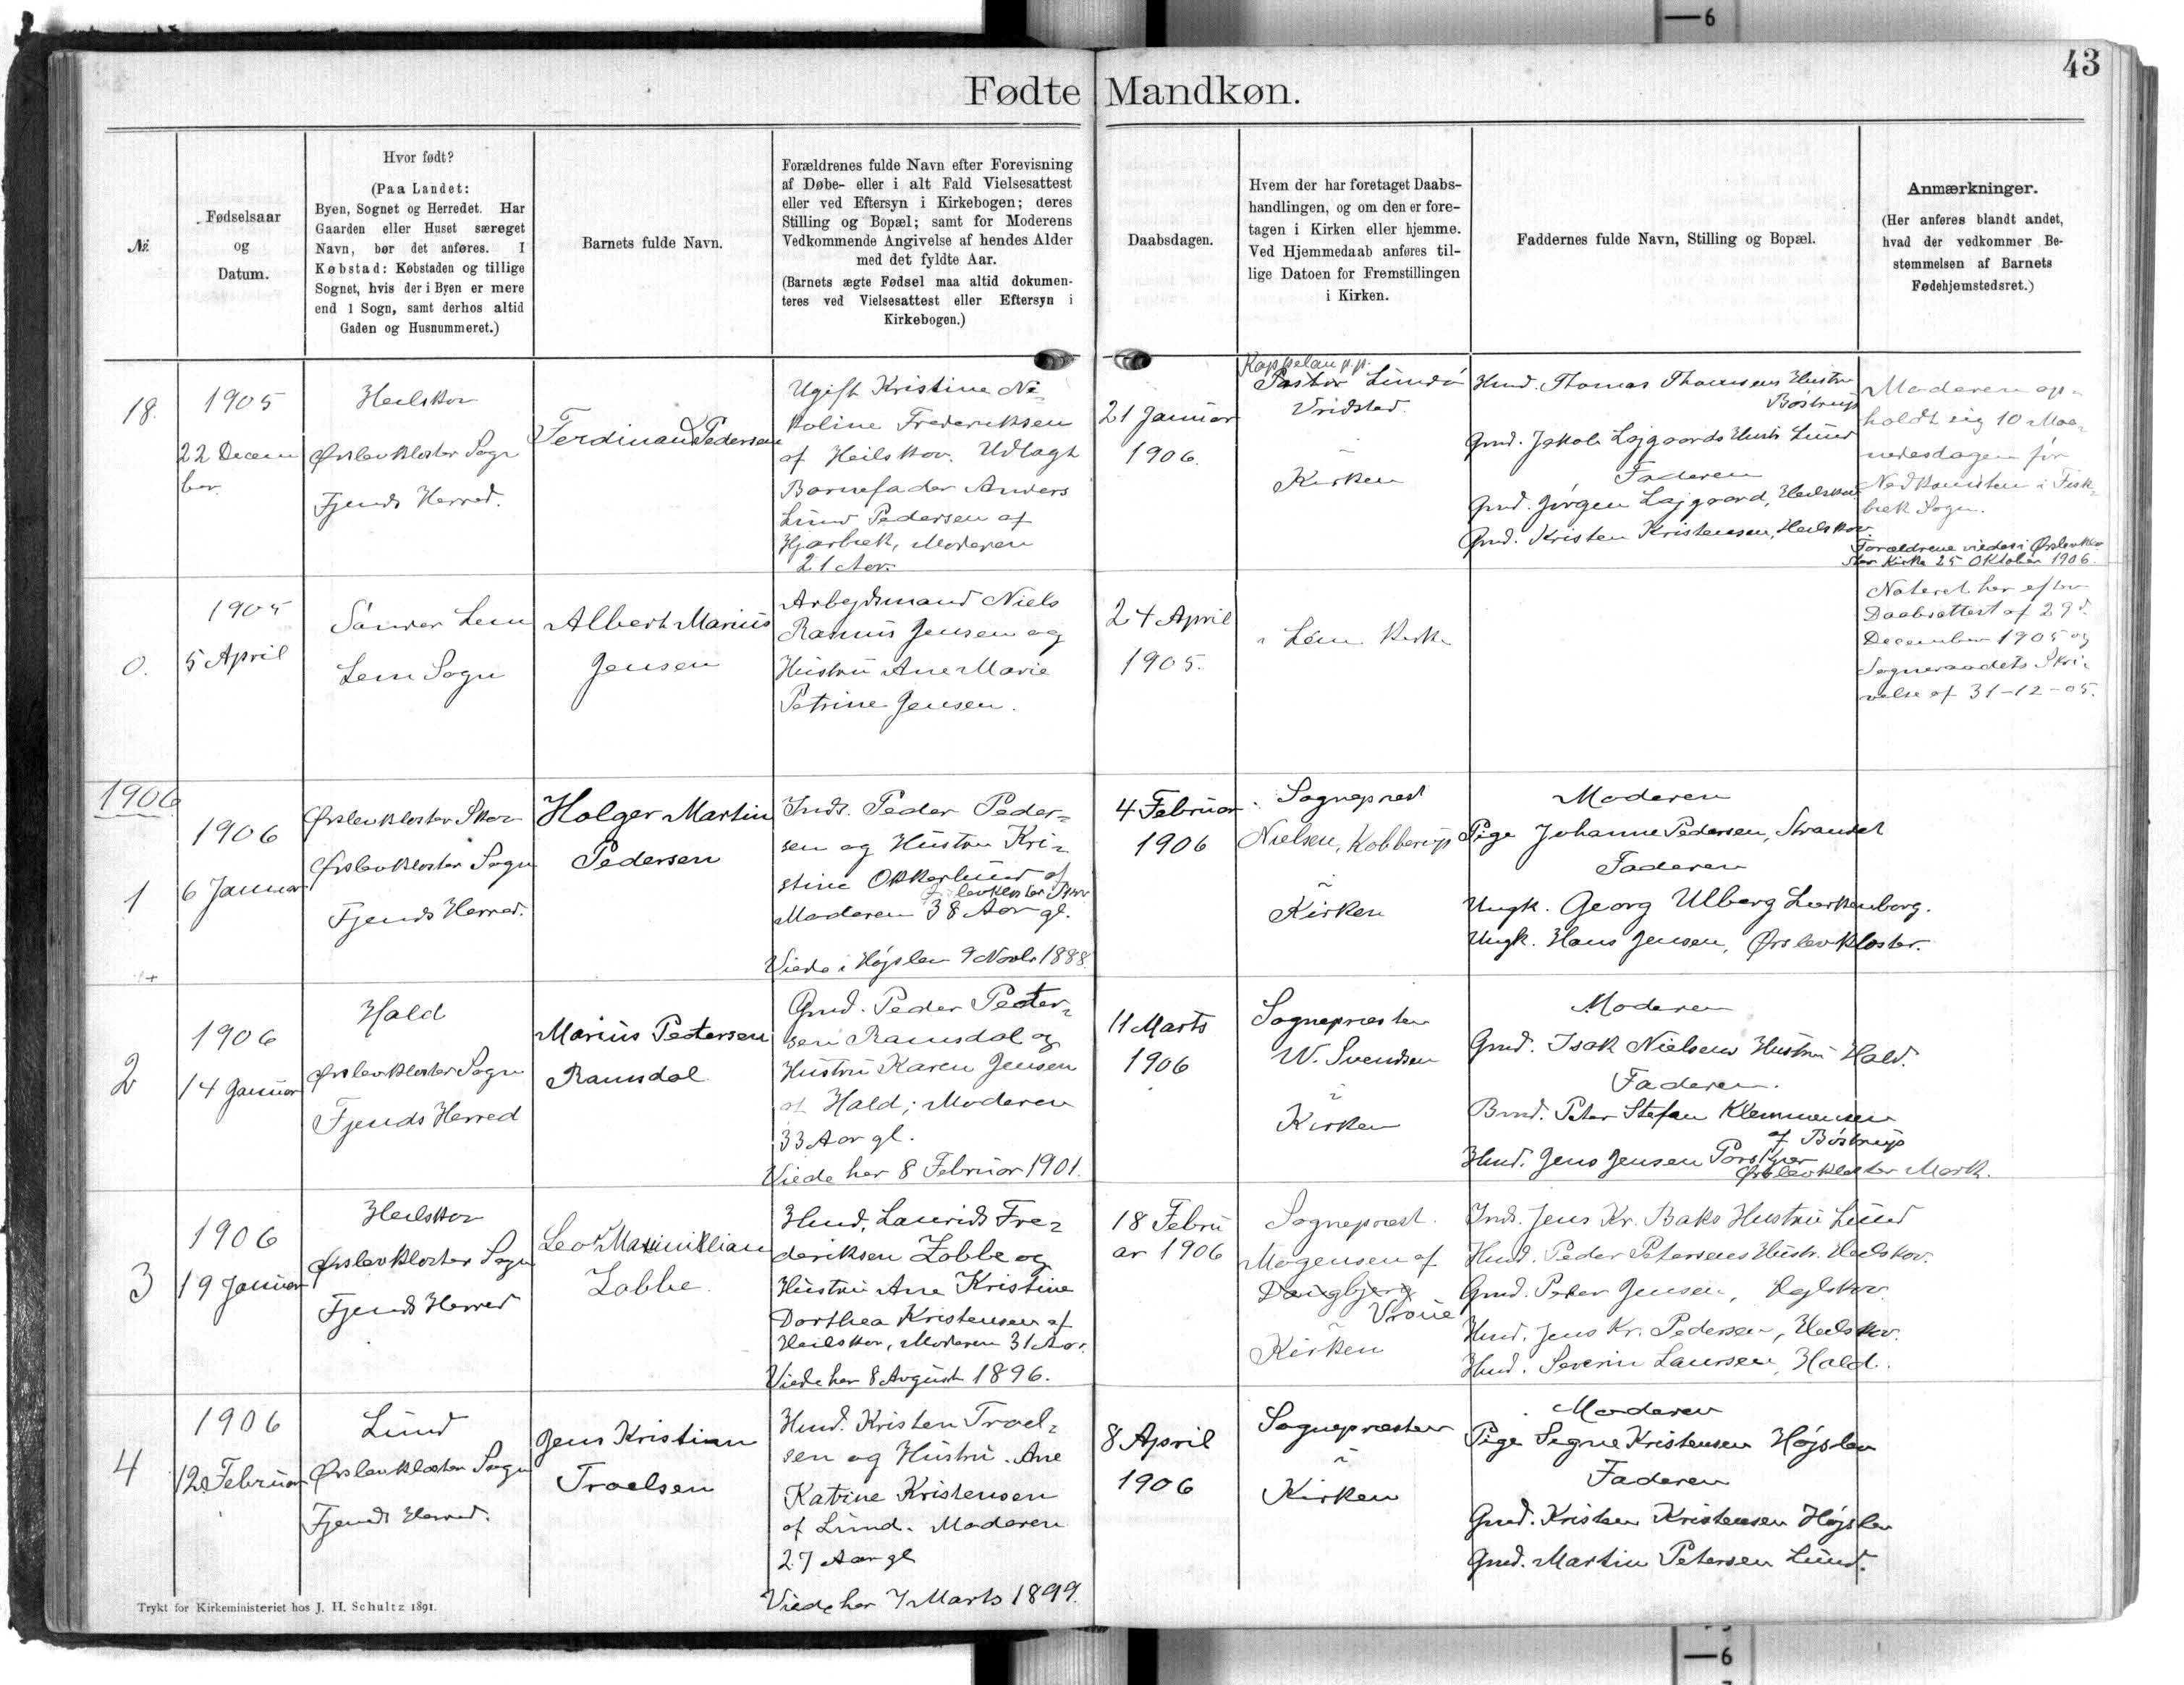 43
Fødte Mandkøn.
№
Fødselsaar
og
Datum.
Hvor født?
(Paa Landet:
Byen, Sognet og Herredet. Har
Gaarden eller Huset særeget
Navn, bør det anføres. I
Købstad: Købstaden og tillige
Sognet, hvis der i Byen er mere
end 1 Sogn, samt derhos altid
Gaden og Husnummeret.)
Barnets fulde Navn.
Forældrenes fulde Navn efter Forevisning
af Døbe- eller i alt Fald Vielsesattest
eller ved Eftersyn i Kirkebogen; deres
Stilling og Bopæl; samt for Moderens
Vedkommende Angivelse af hendes Alder
med det fyldte Aar.
(Barnets ægte Fødsel maa altid dokumen-
teres ved Vielsesattest eller Eftersyn i
Kirkebogen.)
Daabsdagen.
Hvem der har foretaget Daabs-
handlingen, og om den er fore-
tagen i Kirken eller hjemme.
Ved Hjemmedaab anføres til-
lige Datoen for Fremstillingen
i Kirken.
Faddernes fulde Navn, Stilling og Bopæl.
Anmærkninger.
(Her anføres blandt andet,
hvad der vedkommer Be-
stemmelsen af Barnets
Fødehjemstedsret.)
18.
1905
22 Decem
ber.
Heilskov
Ørslevkloster Sogn
Fjends Herred.
Ferdinand Pedersen
Ugift Kristine Ni-
koline Frederiksen
af Heilskov. Udlagt
Barnefader Anders
Lund Pedersen af
Hjarbæk, Moderen
21 Aar.
21 Januar
1906.
Kappelan p.p.
Pastor Lund i
Vridsted.
i
Kirken
Hmd. Thomas Thomsens Hustru
Bostrup
Gmd. Jakob Lajgaards Hustr Lund
Faderen
Gmd. Jørgen Lajgaard, Heilskov
Gmd. Kristen Kristensen, Heilskov
Moderen op-
holdt sig 10 Maa-
nedesdagen før
Nedkomsten i Fisk-
bæk Sogn.
Forældrene viedes i Ørslevklo-
ster Kirke 25 Oktober 1906.
0.
1905
5 April
Sønder Lem
Lem Sogn
Albert Marius
Jensen
Arbejdsmand Niels
Rasmus Jensen og
Hustru Ane Marie
Petrine Jensen.
24 April
1905.
i Lem Kirke
Noteret her efter
Daabsattest af 29d.
December 1905 og
Sogneraadets Skri-
velse af 31-12-05.
1906
1
1906
6 Januar
Ørslevkloster Skov
Ørslevkloster Sogn
Fjends Herred.
Holger Martin
Pedersen
Inds. Peder Peder-
sen og Hustru Kri-
stine Okkerlund af
Ørslevkloster Skov
Moderen 38 Aar gl.
Viede i Højslev 9 Novbr 1888.
4 Februar
1906
Sognepræst
Nielsen, Kobberup
i
Kirken
Moderen
Pige Johanne Pedersen, Strandet
Faderen
Ungk. Georg Ulberg Lerkenborg.
Ungk. Hans Jensen, Ørslevkloster.
2
1906
14 Januar
Hald
Ørslevkloster Sogn
Fjends Herred
Marius Pedersen
Ramsdal
Gmd. Peder Peder-
sen Ramsdal og
Hustru Karen Jensen
af Hald; Moderen
33 Aar gl.
Viede her 8 Februar 1901.
11 Marts
1906
Sognepræsten
W. Svendsen
i
Kirken
Moderen
Gmd. Isak Nielsens Hustru Hald.
Faderen.
Bmd. Peter Stefan Klemmensen
af Bostrup
Hmd. Jens Jensen Porskjær
Ørslevkloster Mark.
3
1906
19 Januar
Heilskov
Ørslevkloster Sogn
Fjends Herred
Leo Maximillian
Zobbe.
Hmd. Laurids Fre-
deriksen Zobbe og
Hustru Ane Kristine
Dorthea Kristensen af
Heilskov, Moderen 31 Aar.
Viede her 8 August 1896.
18 Febru
ar 1906
Sognepræst.
Mogensen af
Daugbjerg
Vroue
i
Kirken
Inds. Jens Kr. Baks Hustru Lund
Hmd. Peder Petersens Hustr. Heilskov.
Gmd. Peter Jensen, Hejlskov
Hmd. Jens Kr. Pedersen, Heilskov.
Hmd. Severin Laursen, Hald.
4
1906
12 Februar
Lund
Ørslevkloster Sogn
Fjends Herred.
Jens Kristian
Troelsen
Hmd. Kristen Troel-
sen og Hustru. Ane
Katrine Kristensen
af Lund. Moderen
27 Aar gl
Viede her 7 Marts 1899.
8 April
1906
Sognepræsten
i
Kirken
Moderen
Pige Signe Kristensen Højslev
Faderen
Gmd. Kristen Kristensen Højslev
Gmd. Martin Petersen Lund.
Trykt for Kirkeministeriet hos J. H. Schultz 1891.
6
6